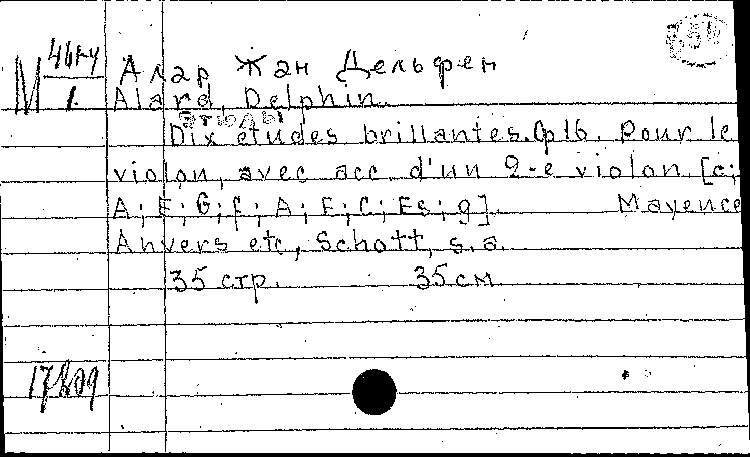 М 1. Алар Жан Дельфен
Alard, Delphin.
этюды
Dix études brillantes. Op 16. Pour le
violon, avec acc. d'un 2-e violon. [c;
A; E; G; f; A; E; C; Es; g]. Mayence
Anvers etc, Schott, s.a.
35 стр. 35 см